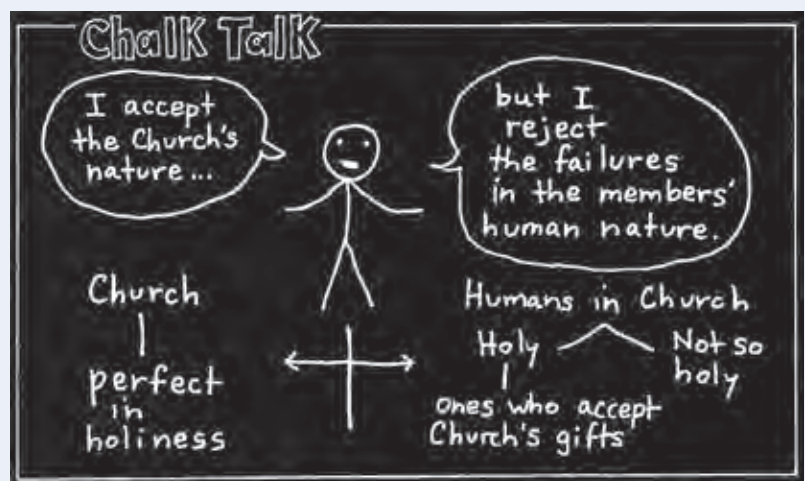 Chalk Talk
I accept
the Church's
nature...
but I
reject
the failures
in the members'
human nature.
Church
perfect
in
holiness
Humans in Church
Holy
Not so
holy
ones who accept
Church's gifts